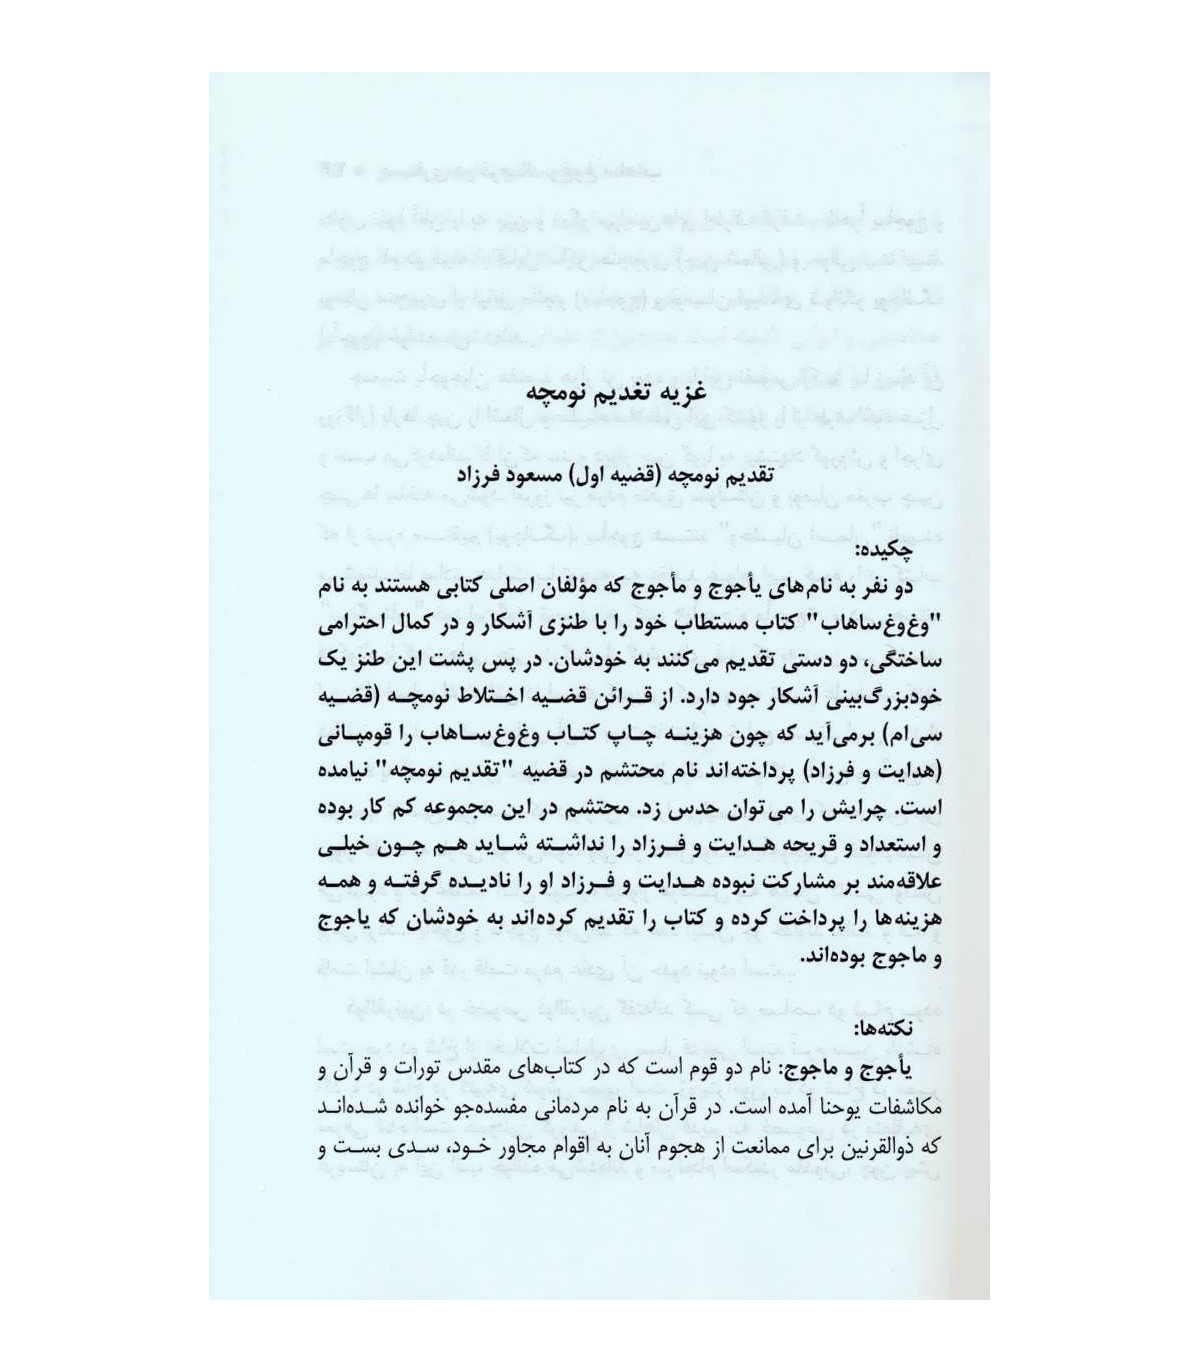 غزیه تغدیم نومچه
تقدیم نومچه (قضیه اول) مسعود فرزاد
چکیده:
دو نفر به نام‌های یأجوج و مأجوج که مؤلفان اصلی کتابی هستند به نام
"وغ‌وغ‌ساهاب" کتاب مستطاب خود را با طنزی آشکار و در کمال احترامی
ساختگی، دو دستی تقدیم می‌کنند به خودشان. در پس پشت این طنز یک
خودبزرگ‌بینی آشکار جود دارد. از قرائن قضیه اختلاط نومچه (قضیه
سی‌ام) برمی‌آید که چون هزینه چاپ کتاب وغ‌وغ‌ساهاب را قومپانی
(هدایت و فرزاد) پرداخته‌اند نام محتشم در قضیه "تقدیم نومچه" نیامده
است. چرایش را می‌توان حدس زد. محتشم در این مجموعه کم کار بوده
و استعداد و قریحه هدایت و فرزاد را نداشته شاید هم چون خیلی
علاقه‌مند بر مشارکت نبوده هدایت و فرزاد او را نادیده گرفته و همه
هزینه‌ها را پرداخت کرده و کتاب را تقدیم کرده‌اند به خودشان که یاجوج
و ماجوج بوده‌اند.
نکته‌ها:
یأجوج و ماجوج: نام دو قوم است که در کتاب‌های مقدس تورات و قرآن و
مکاشفات یوحنا آمده است. در قرآن به نام مردمانی مفسده‌جو خوانده شده‌اند
که ذوالقرنین برای ممانعت از هجوم آنان به اقوام مجاور خود، سدی بست و